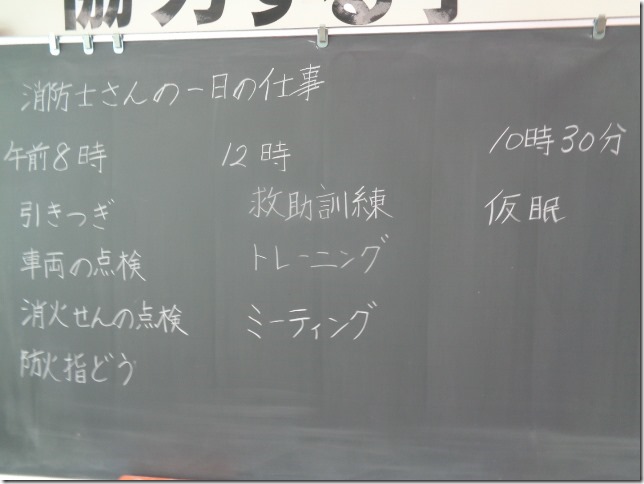 協力する子
消防士さんの一日の仕事
午前8時
引きつぎ
車両の点検
消火せんの点検
防火指どう
12時
救助訓練
トレーニング
ミーティング
10時30分
仮眠